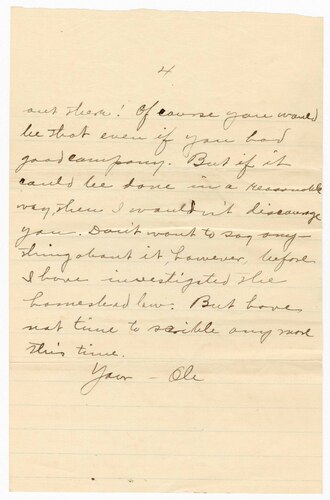 4
out there! Of course you would
be that even if you had
good company. But if it
could be done in a reasonable
way, then I wouldn't discourage
you. Don't want to say any-
thing about it, however, before
I have investigated the
homestead law. But have
not time to scrible any more
this time.
Your - Ole